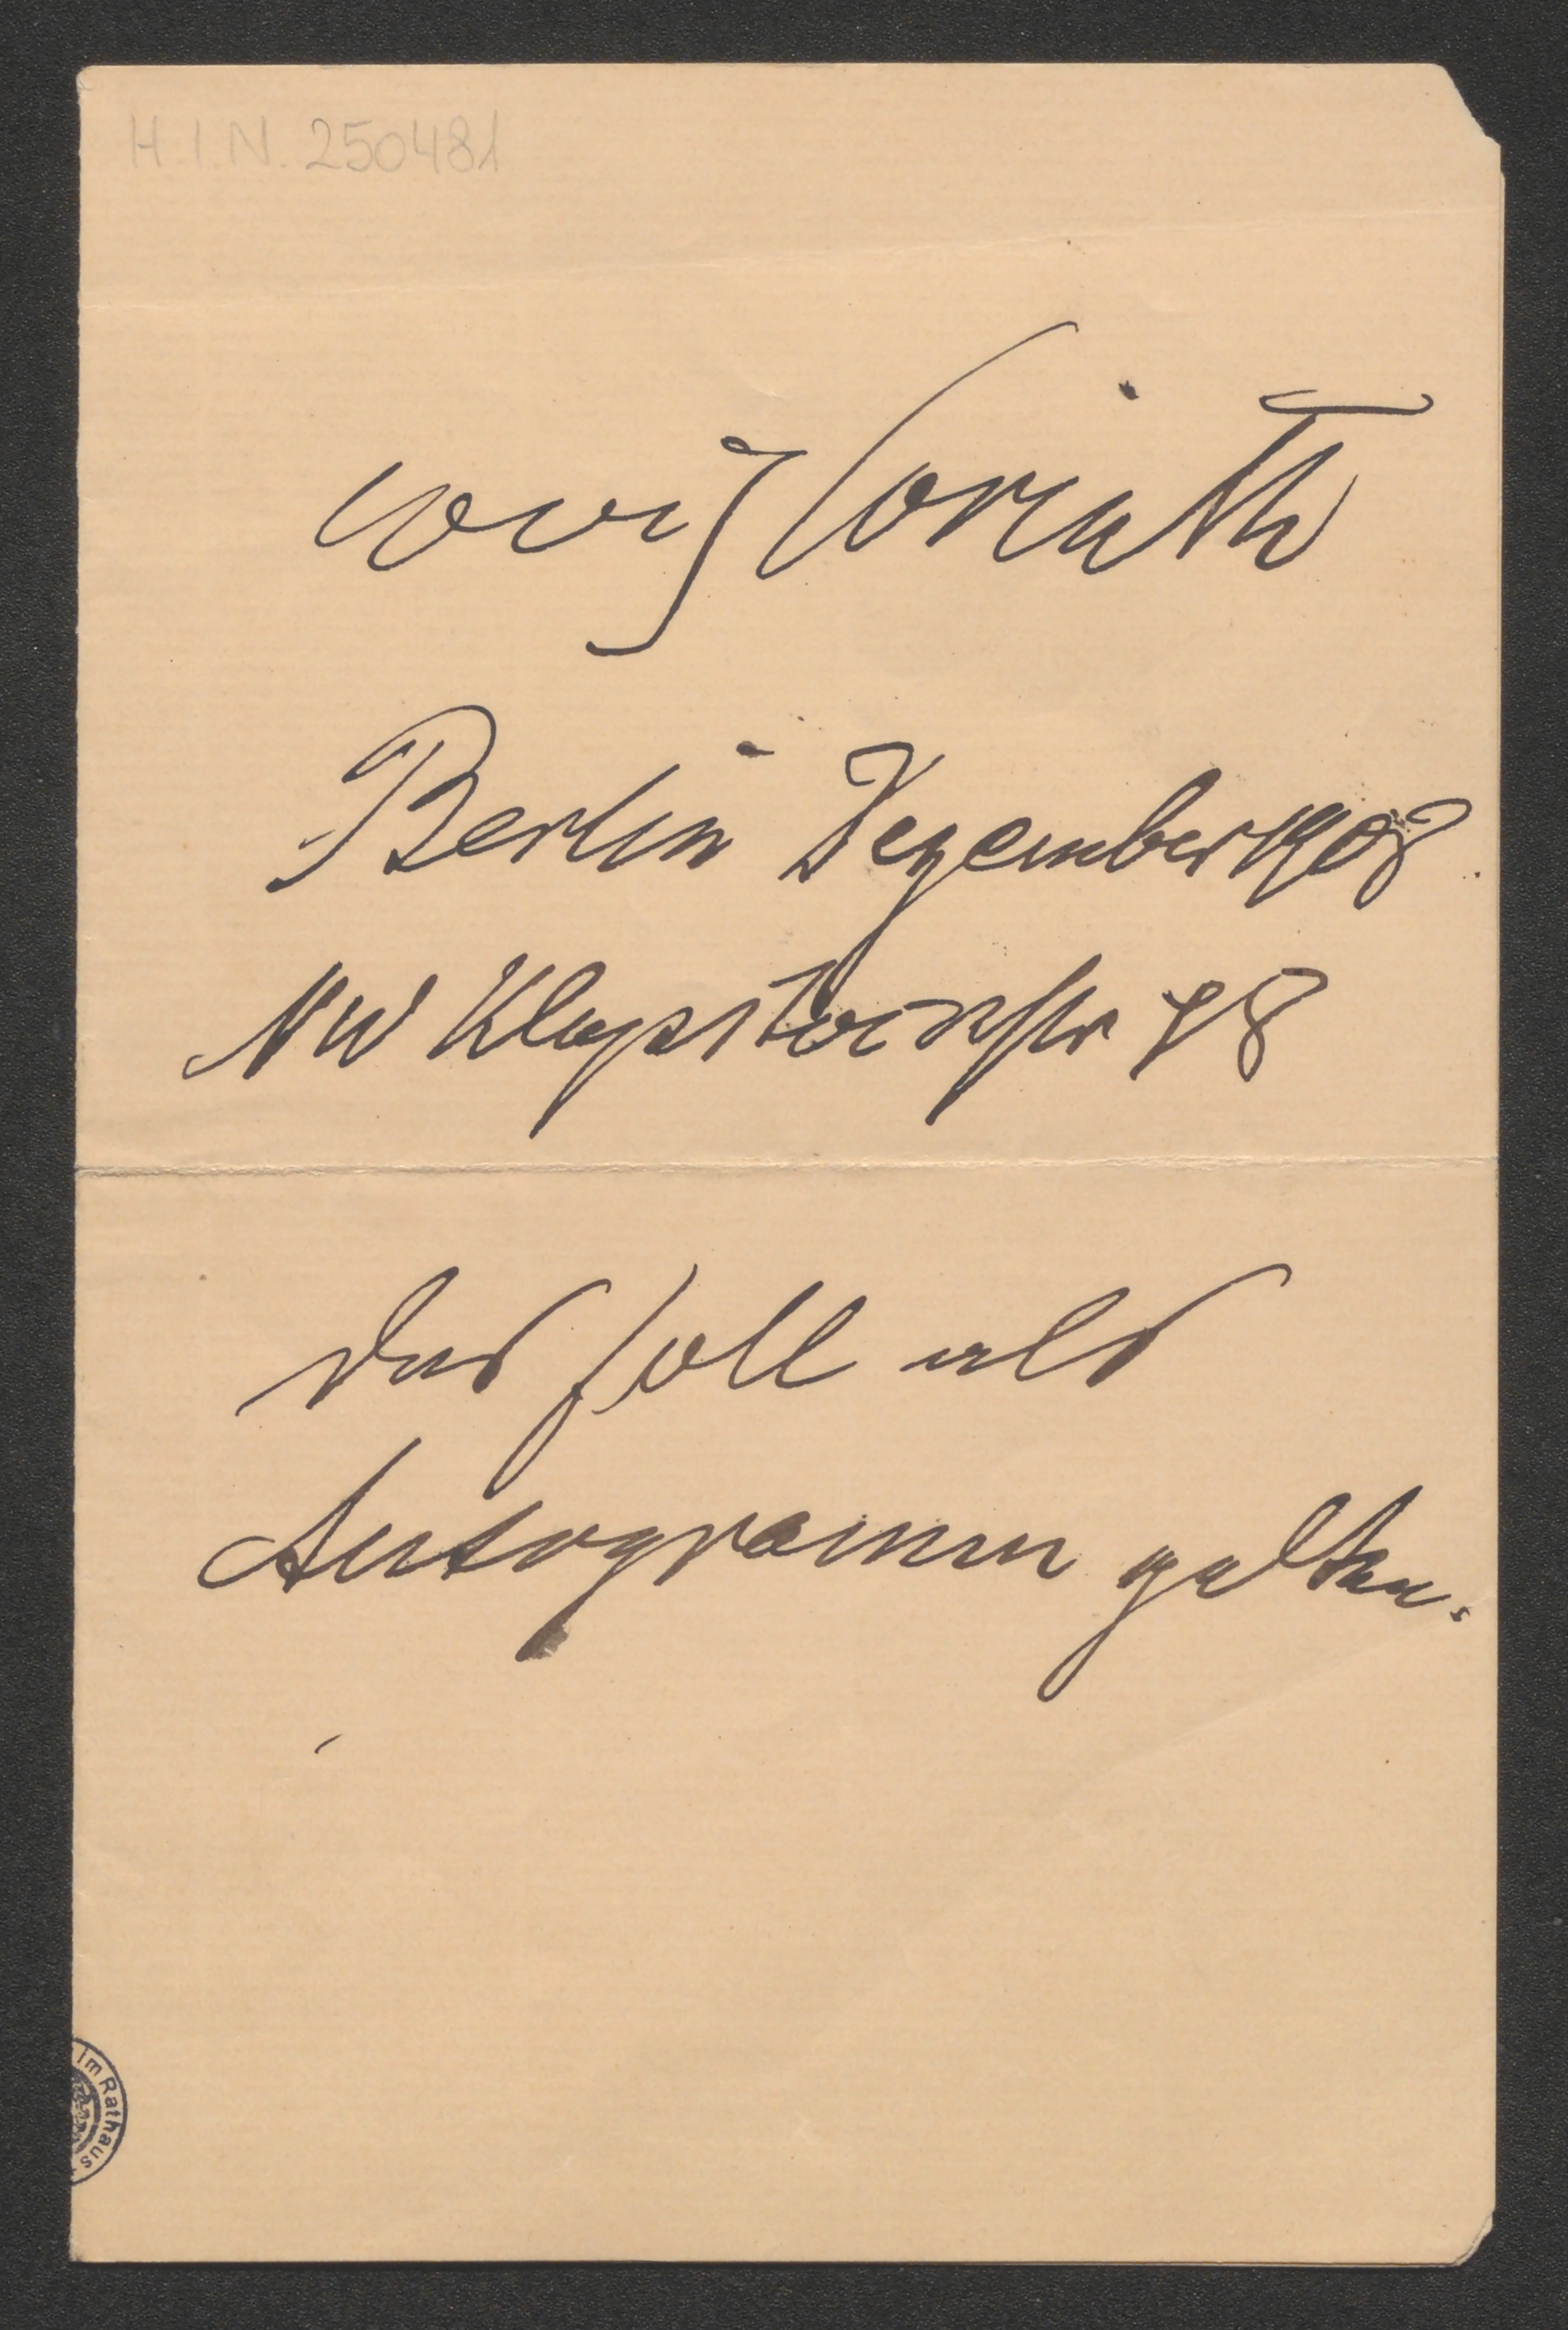 H.I.N. 250481
Lovis Corinth
Berlin Dezember 1908
NW Klopstockstr 48
das soll als
Autogramm gelten.
im Rathaus